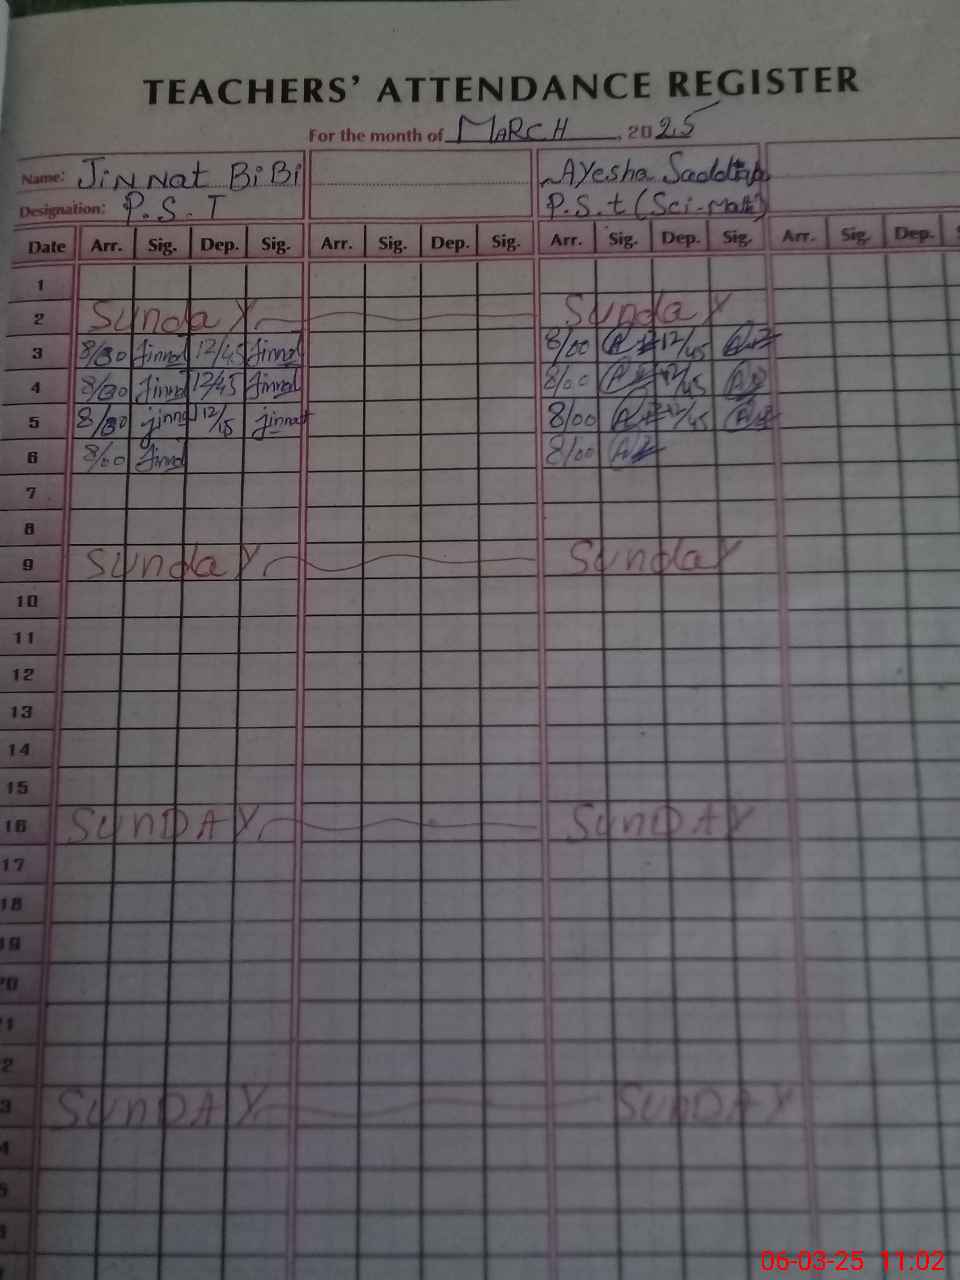 TEACHERS' ATTENDANCE REGISTER
For the month of MARCH, 2025
Name: JiNNat BiBi AYesha
Designation: P.S.T P.S.t (Sci-Math)
Date Arr. Sig. Dep. Sig. Arr. Sig. Dep. Sig. Arr. Sig. Dep. Sig. Arr. Sig. Dep.
1
2 SundaY SundaY
3 8/00 Jinnat 12/45 Jinnat 8/00 12/45
4 8/00 Jinnat 12/45 Jinnat 8/00 12/45
5 8/00 jinnat 12/ jinnat 8/00 12/45
6 8/00 Jinnat 8/00
7
8
9 SundaY SundaY
10
11
12
13
14
15
16 SunDAY SunDAY
17
18
19
0
1
2
3 SunDAY SunDAY
4
5
06-03-25 11:02